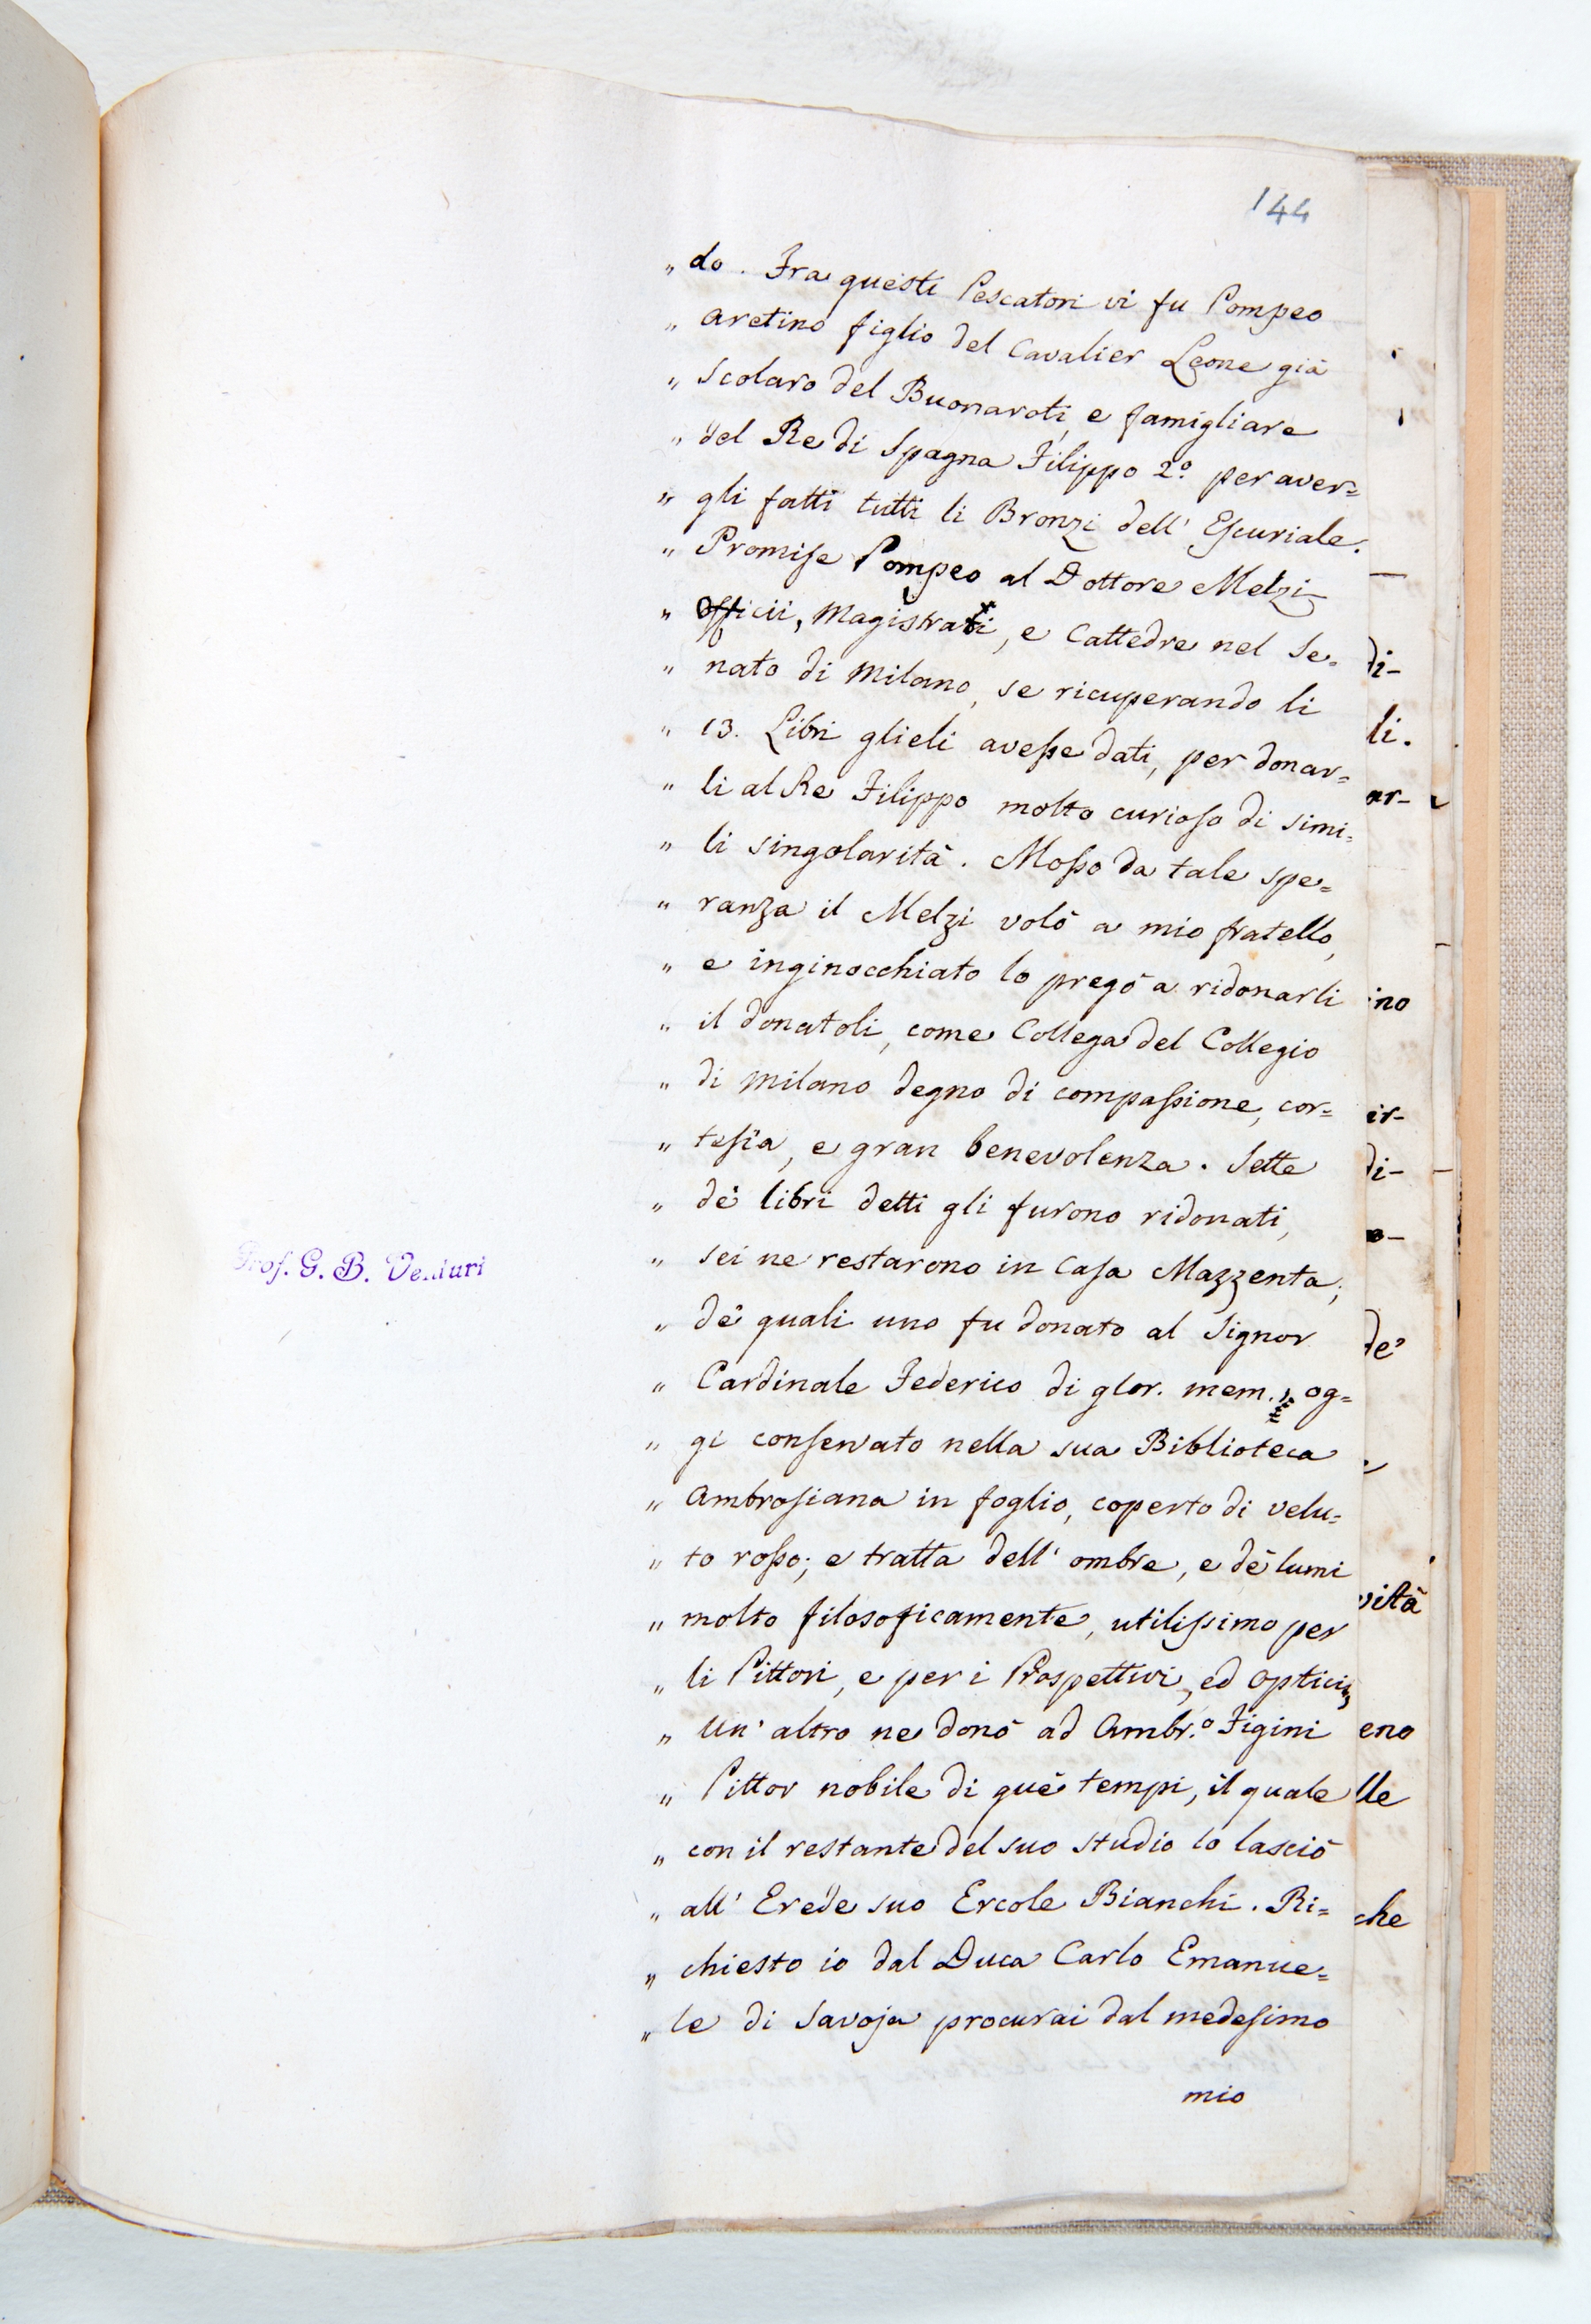 144
„ do. Fra questi Pescatori vi fu Pompeo
„ Aretino figlio del Cavalier Leone già
„ Scolaro del Buonaroti, e famigliare
„ del Re di Spagna Filippo 2.º per aver=
„ gli fatti tutti li Bronzi dell' Escuriale.
„ Promise Pompeo al Dottore Melzi
„ Officii, Magistrati, e Cattedre nel Se=
„ nato di Milano, se ricuperando li
„ 13. Libri glieli avesse dati, per donar=
„ li al Re Filippo molto curioso di simi=
„ li singolarità. Mosso da tale spe=
„ ranza il Melzi volò a mio fratello,
„ e inginocchiato lo pregò a ridonarli
„ il donatoli, come Collega del Collegio
„ di Milano degno di compassione, cor=
„ tesia, e gran benevolenza. Sette
„ de' libri detti gli furono ridonati,
„ sei ne restarono in Casa Mazzenta;
„ de' quali uno fu donato al Signor
„ Cardinale Federico di glor. mem., og=
„ gi conservato nella sua Biblioteca
„ Ambrosiana in foglio, coperto di velu=
„ to rosso; e tratta dell' ombre, e de' lumi
„ molto filosoficamente, utilissimo per
„ li Pittori, e per i Prospettivi, ed Optici,
„ Un' altro ne donò ad Ambr.º Figini
„ Pittor nobile di que' tempi, il quale
„ con il restante del suo studio lo lasciò
„ all' Erede suo Ercole Bianchi. Ri=
„ chiesto io dal Duca Carlo Emanue=
„ le di Savoja procurai dal medesimo
mio
Prof. G. B. Venturi
di-
li.
ar-
ino
ir-
di-
o-
de'
vità
eno
lle
che